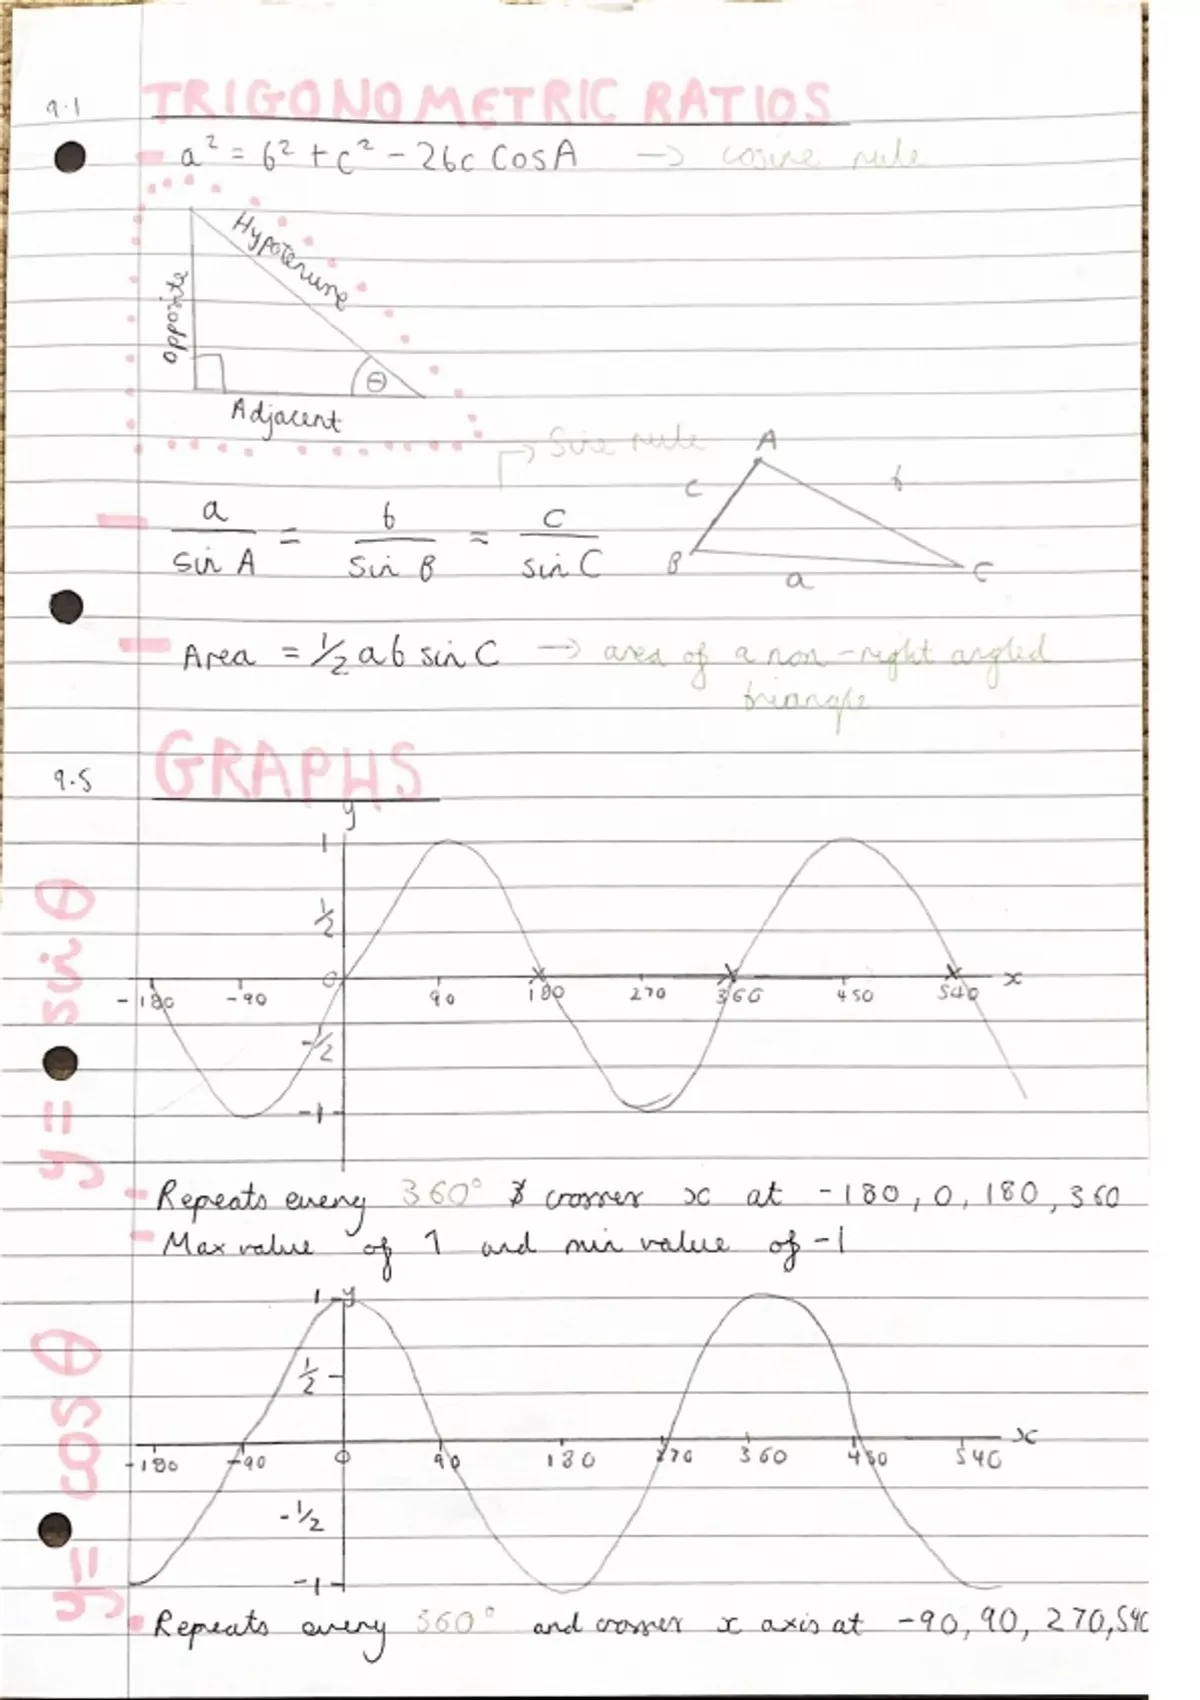 9.1
TRIGONOMETRIC RATIOS
a² = b² + c² - 2bc CosA → cosine rule
Hypotenuse
Opposite
θ
Adjacent
→ Sine rule
A
c
b
B
a
C
a/sin A = b/sin B = c/sin C
Area = ½ ab sin C → area of a non-right angled
triangle
9.5
GRAPHS
y = sin θ
y
1
½
0
-180 -90 90 180 270 360 450 540 x
-½
-1
Repeats every 360° & crosses x at -180, 0, 180, 360
Max value of 1 and min value of -1
y = cos θ
1 y
½
-180 -90 0 90 180 270 360 450 540 x
-½
-1
Repeats every 360° and crosses x axis at -90, 90, 270, 540